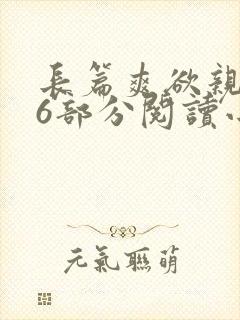 長篇爽欲親
6部分閱讀
元氣聯萌